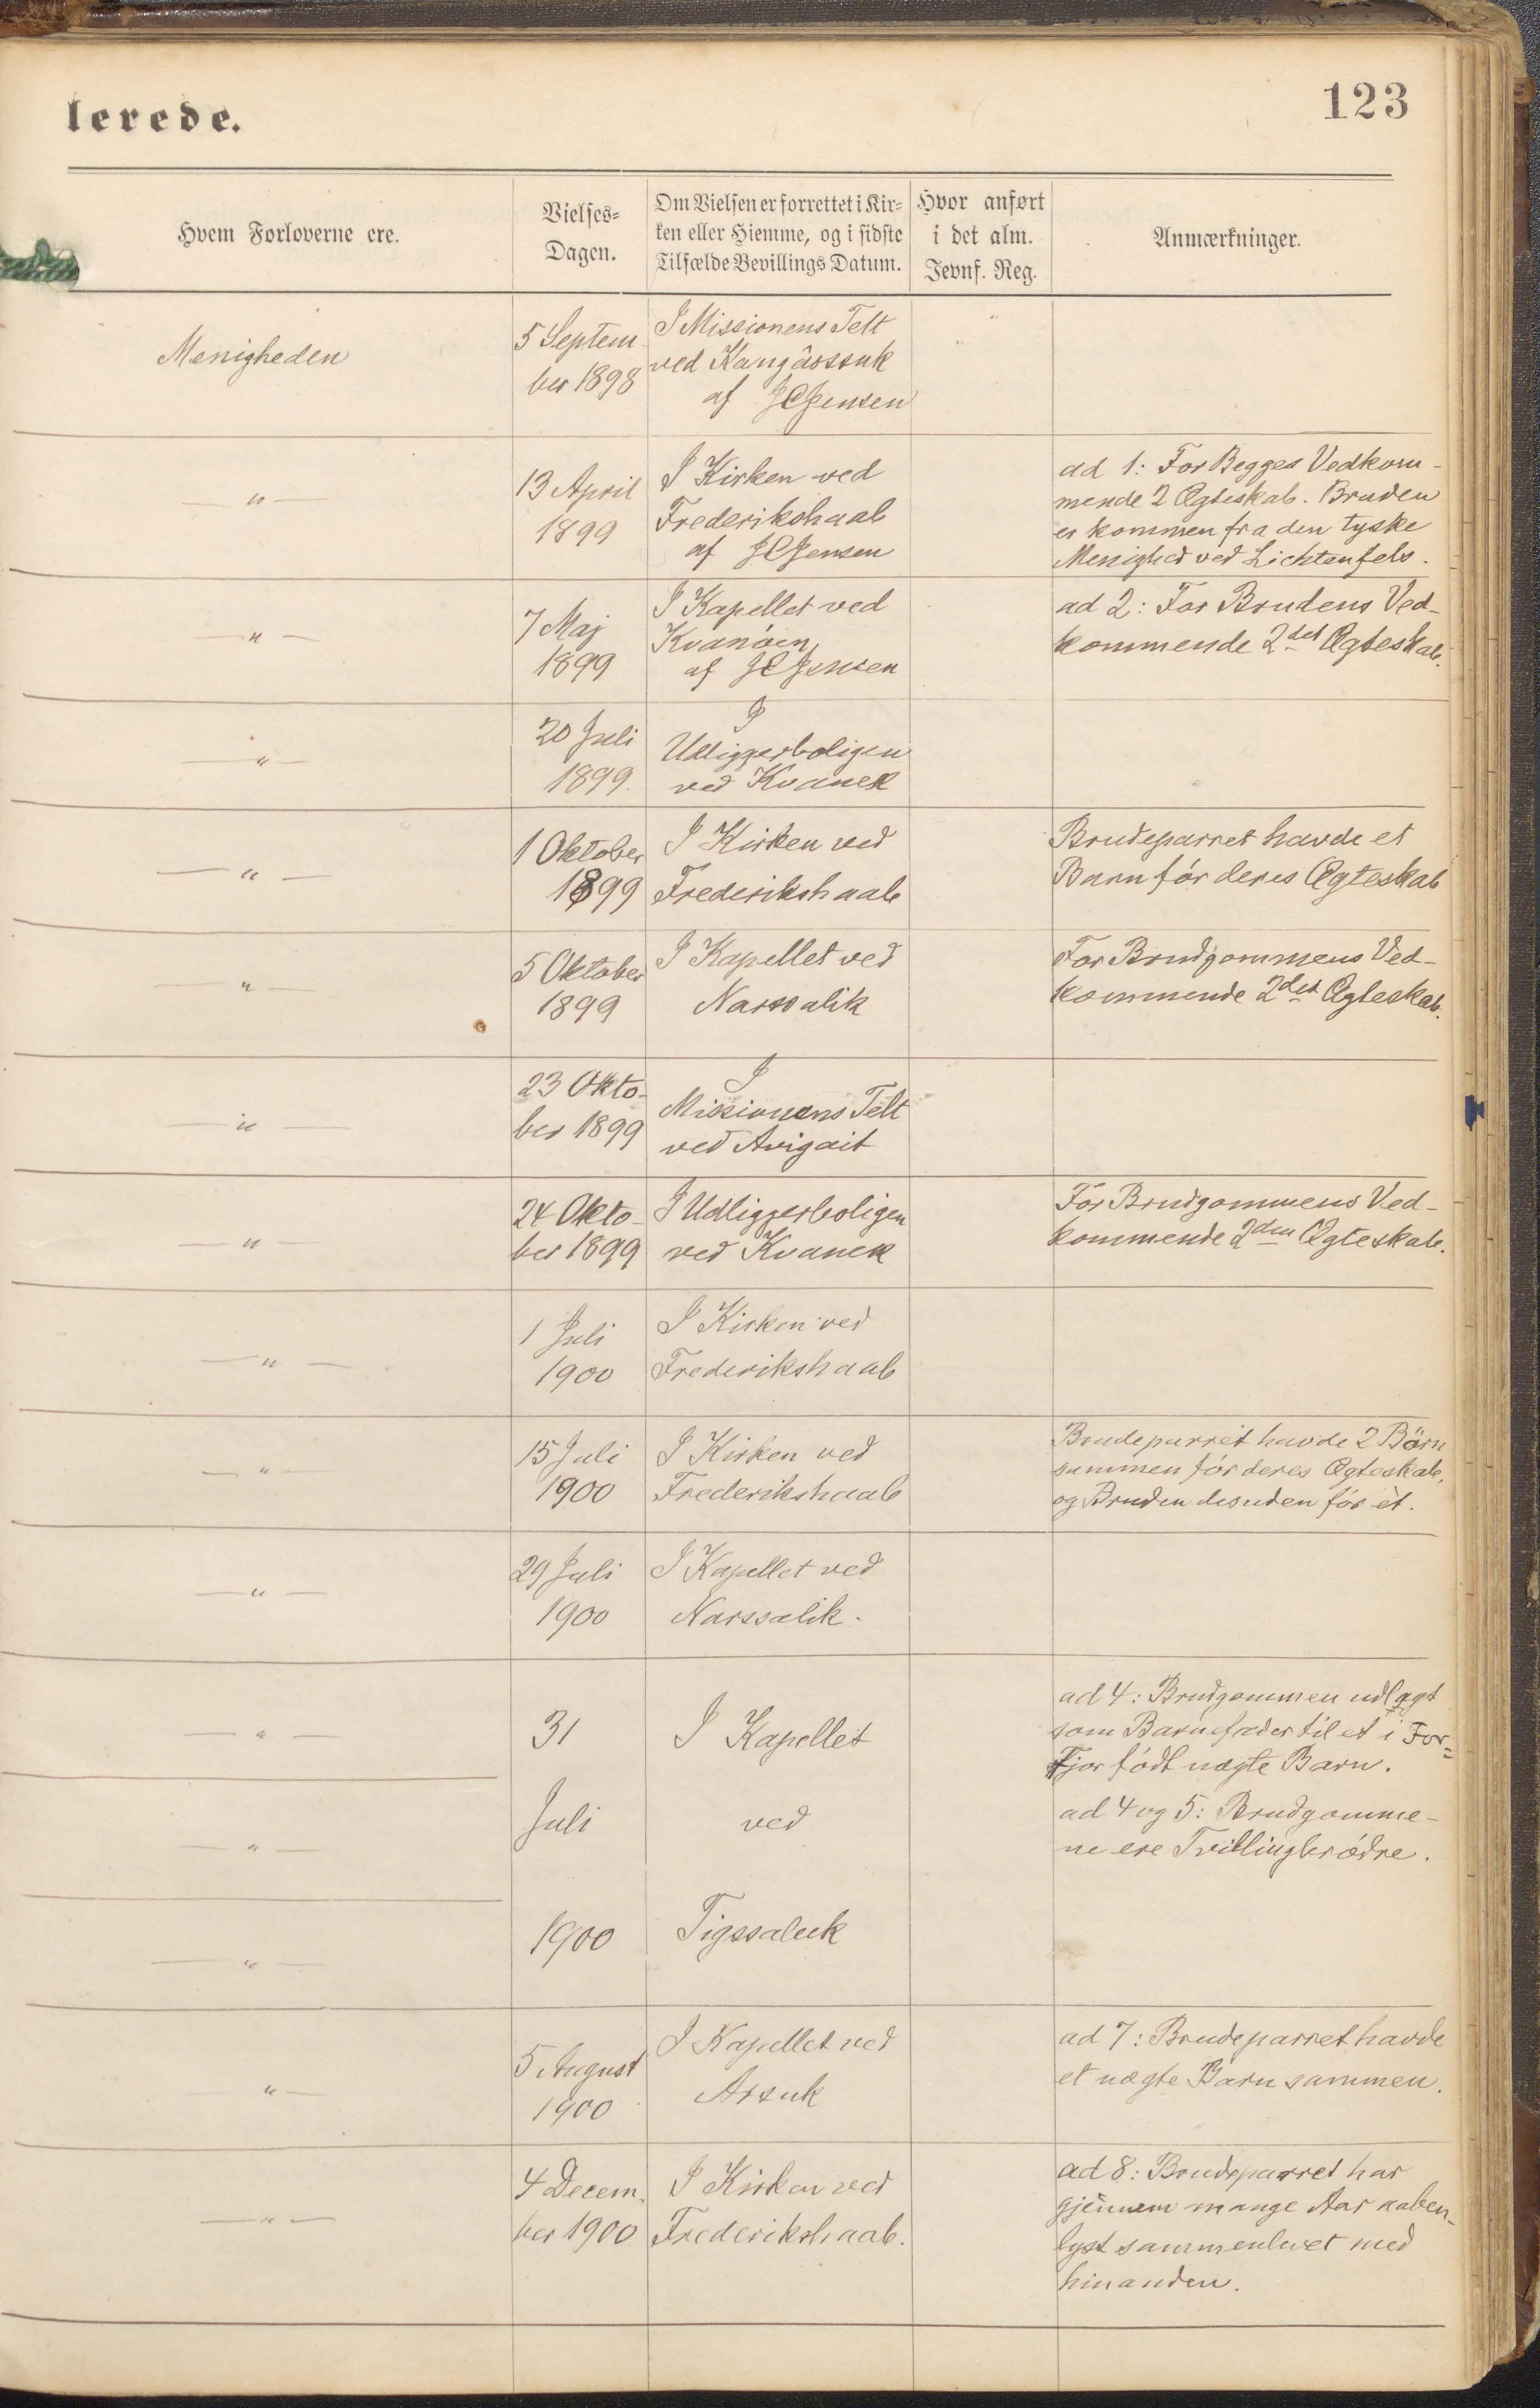 lerede.
123
Hvem Forloverne ere.
Vielses-
Dagen.
Om Vielsen er forrettet i Kir-
ken eller Hiemme, og i sidste
Tilfælde Bevillings Datum.
Hvor anført
i det alm.
Jevnf. Reg.
Anmærkninger.
Menigheden
5 Septem
ber 1898
I Missionens Telt
ved Kangârssuk
af JCJensen
"
— " —
13 April
1899
I Kirken ved
Frederikshaab
af JCJensen
ad 1: For Begges Vedkom-
mende 2 Ægteskab. Bruden
er kommen fra den tyske
Menighed ved Lichtenfels.
— " —
7 Maj
1899
I Kapellet ved
Kvanöen
af JCJensen
ad 2: For Brudens Ved-
kommende 2det Ægteskab.
— " —
20 Juli
1899.
I
Udliggerboligen
ved Kvanek
— " —
1 Oktober
1899
I Kirken ved
Frederikshaab
Brudeparret havde et
Barn för deres Ægteskab
— " —
5 Oktober
1899
I Kapellet ved
Narssalik
For Brudgommens Ved-
kommende 2det Ægteskab.
— " —
23 Okto-
ber 1899
I
Missionens Telt
ved Avigait
— " —
24 Okto-
ber 1899
I Udliggerboligen
ved Kvanek
For Brudgommens Ved-
kommende 2den Ægteskab.
— " —
1 Juli
1900
I Kirken ved
Frederikshaab
— " —
15 Juli
1900
I Kirken ved
Frederikshaab
Brudeparret havde 2 Börn
sammen för deres Ægteskab,
og Bruden desuden för èt.
— " —
29 Juli
1900
I Kapellet ved
Narssalik.
— " —
— " —
— " —
31
Juli
1900
I Kapellet
ved
Tigssaluk
ad 4: Brudgommen udlagt
som Barnefader til et i For=
Fjor födt uægte Barn.
ad 4 og 5: Brudgomme-
ne ere Tvillingbrödre.
" —
5 August
1900
I Kapellet ved
Arsuk
ad 7: Brudeparret havde
et uægte Barn sammen.
— " —
4 Decem-
ber 1900
I Kirken ved
Frederikshaab.
ad 8: Brudeparret har
gjennem mange Aar aaben-
lyst sammenlevet med
hinanden.